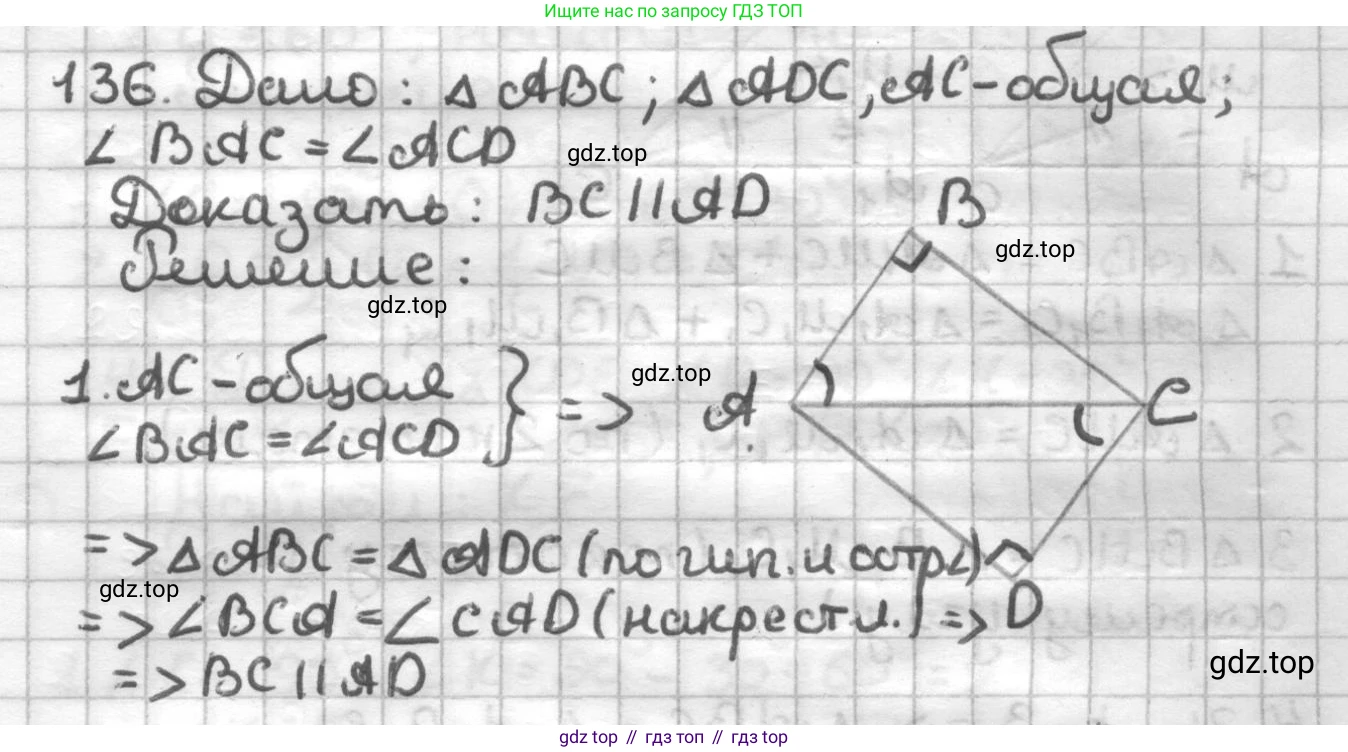 Ищите нас по запросу ГДЗ ТОП
136. Дано : Δ ABC ; Δ ADC , AC - общая ;
∠ BAC = ∠ ACD
gdz.top
Доказать : BC || AD
B
Решение :
gdz.top
gdz.top
1. AC - общая
∠ BAC = ∠ ACD } =>
gdz.top
A
C
=> Δ ABC = Δ ADC ( по гип. и остр ∠ )
gdz.top
=> ∠ BCA = ∠ CAD ( накрест л. ) =>
D
=> BC || AD
gdz.top
gdz top // гдз топ // gdz top